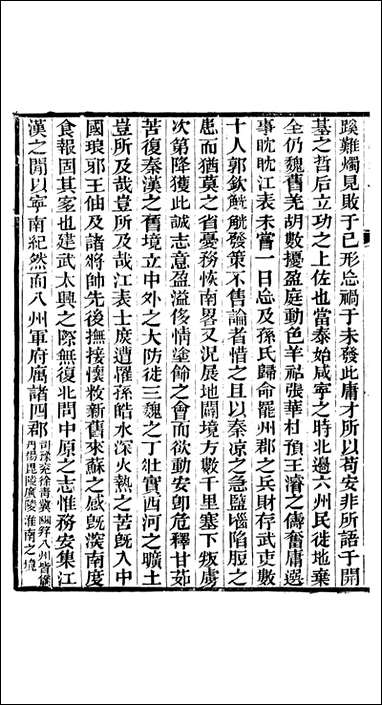 蹊難燭見敗于已形忘禍于未發此庸才所以苟安非所語于開
基之哲后立功之上佐也當泰始咸寧之時北邊六州民徙地棄
全仍魏舊羌胡數擾盈庭動色羊祜張華杜預王濬之儔奮庸選
事眈眈江表未嘗一日忘及孫氏歸命罷州郡之兵財存武吏數
十人郭欽觥觥發策不售論者惜之且以秦涼之急鹽𡺸陷脰之
患而猶莫之省憂務恢南畧又況展地闢境方數千里塞下叛虜
次第降獲此誠志意盈溢侈情塗飾之會而欲動安卽危釋甘茹
苦復秦漢之舊境立中外之大防徙三魏之丁壯實西河之曠土
豈所及哉豈所及哉江表士庶遭罹孫皓水深火熱之苦旣入中
國琅邪王伷及諸將帥先後撫接懷敉新舊來蘇之感旣漢南度
食報固其宐也建武太興之際無復北問中原之志惟務安集江
漢之閒以寧南紀然而八州軍府廣諸四郡司豫兗徐靑冀幽幷八州皆僑丹陽毘陵廣陵淮南之境